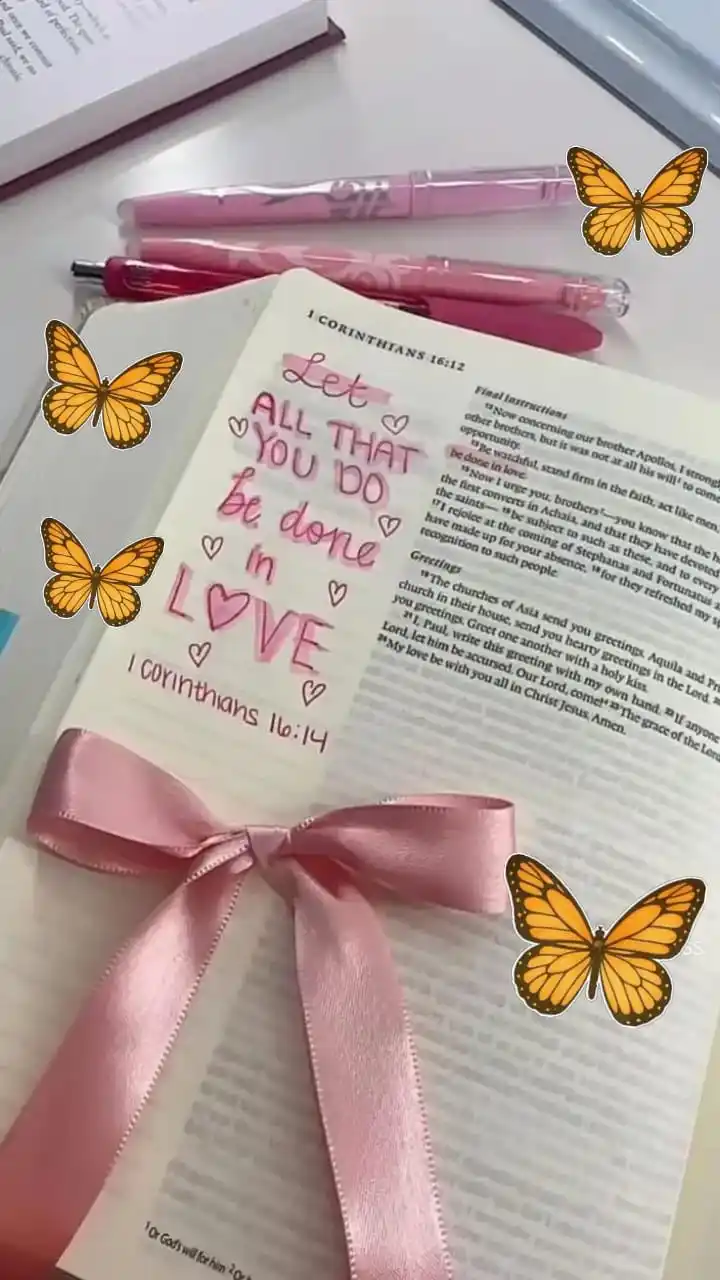 1 CORINTHIANS 16:12
Let
ALL THAT
YOU DO
be done
in
LOVE
1 Corinthians 16:14
Final Instructions
12Now concerning our brother Apollos, I strongl
other brothers, but it was not at all his will1 to come
opportunity.
13Be watchful, stand firm in the faith, act like men,
be done in love.
15Now I urge you, brothers2—you know that the h
the first converts in Achaia, and that they have devoted
the saints— 16be subject to such as these, and to every
17I rejoice at the coming of Stephanas and Fortunatus
have made up for your absence, 18for they refreshed my
recognition to such people.
Greetings
19The churches of Asia send you greetings. Aquila and Pr
church in their house, send you hearty greetings in the Lord.
you greetings. Greet one another with a holy kiss.
21I, Paul, write this greeting with my own hand. 22If anyone
Lord, let him be accursed. Our Lord, come! 23The grace of the Lord
24My love be with you all in Christ Jesus. Amen.
1 Or God's will for him 2 Or